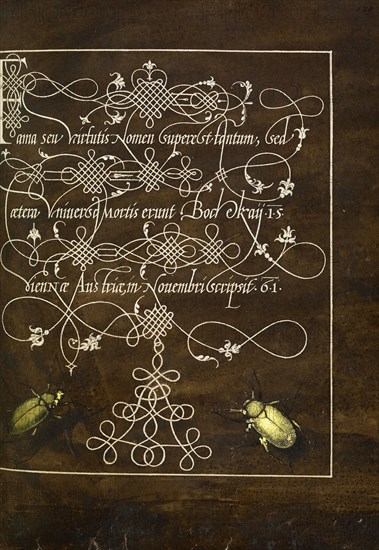 Fama seu virtutis Nomen superest tantum, Sed
cætera Vniversa Mortis erunt. Bocskaij. 15
vienNæ AusTriæ, in Novembri scripsit. 61.